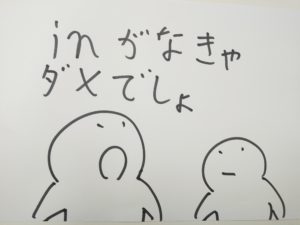 inがなきゃ
ダメでしょ